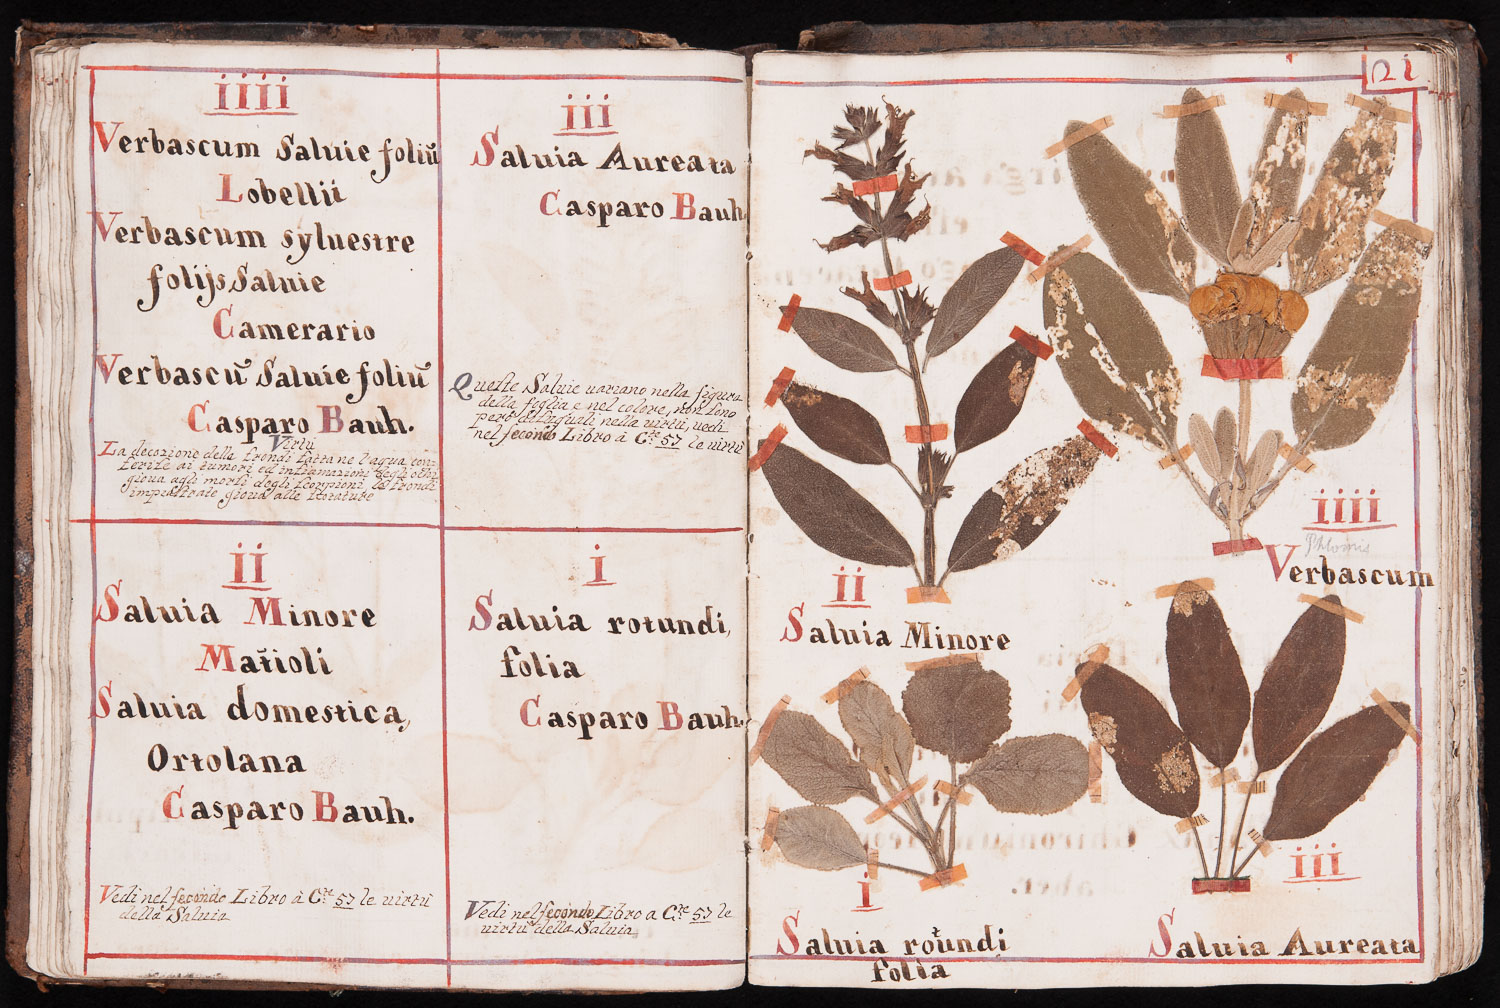 iiii
Verbascum Saluie foliũ
Lobellii
Verbascum syluestre
folijs Saluie
Camerario
Verbascũ Saluie foliũ
Casparo Bauh.
Virtù
La decozione delle frondi fattane l'aqua con
ferisce ai tumori ed infiamazioni degli ochi
gioua agli morsi degli scorpioni le frondi
impiastrate gioua alle
iii
Saluia Aureata
Casparo Bauh
Queste Saluie uariano nella figura
della foglia e nel colore, non sono
però disuguali nella virtù, uedi
nel secondo Libro à Cte 57 le uirtù
ii
Saluia Minore
Matioli
Saluia domestica,
Ortolana
Casparo Bauh.
Vedi nel secondo Libro à Cte 57 le uirtù
della Saluia
i
Saluia rotundi,
folia
Casparo Bauh.
Vedi nel secondo Libro a Cte 57 le
uirtù della Saluia
121
iiii
Phlomis
Verbascum
ii
Saluia Minore
i
Saluia rotundi
folia
iii
Saluia Aureata